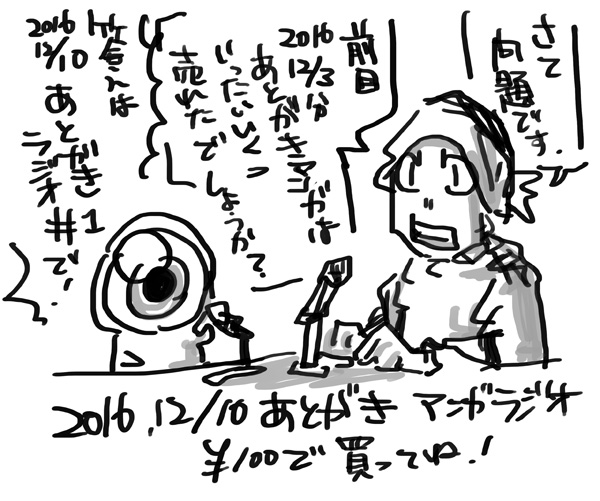 さて
問題です。
前回
2016
12/3分
あとがきマンガは
いったいいくつ
売れたで
しょうか?
答えは
2016
12/10 あとがき
ラジオ #1
で!
2016.12/10 あとがき マンガラジオ
¥100で買ってね!